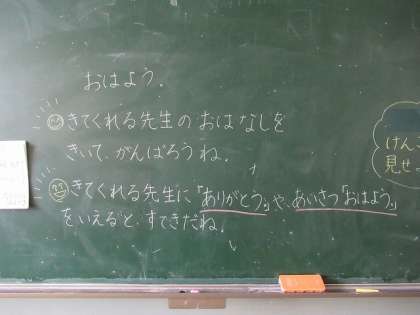 おはよう.
きてくれる先生の おはなしを
きいて、がんばろうね.
きてくれる先生に「ありがとう。」や、あいさつ「おはよう。」
をいえると、すてきだね.
けんこ
見せ